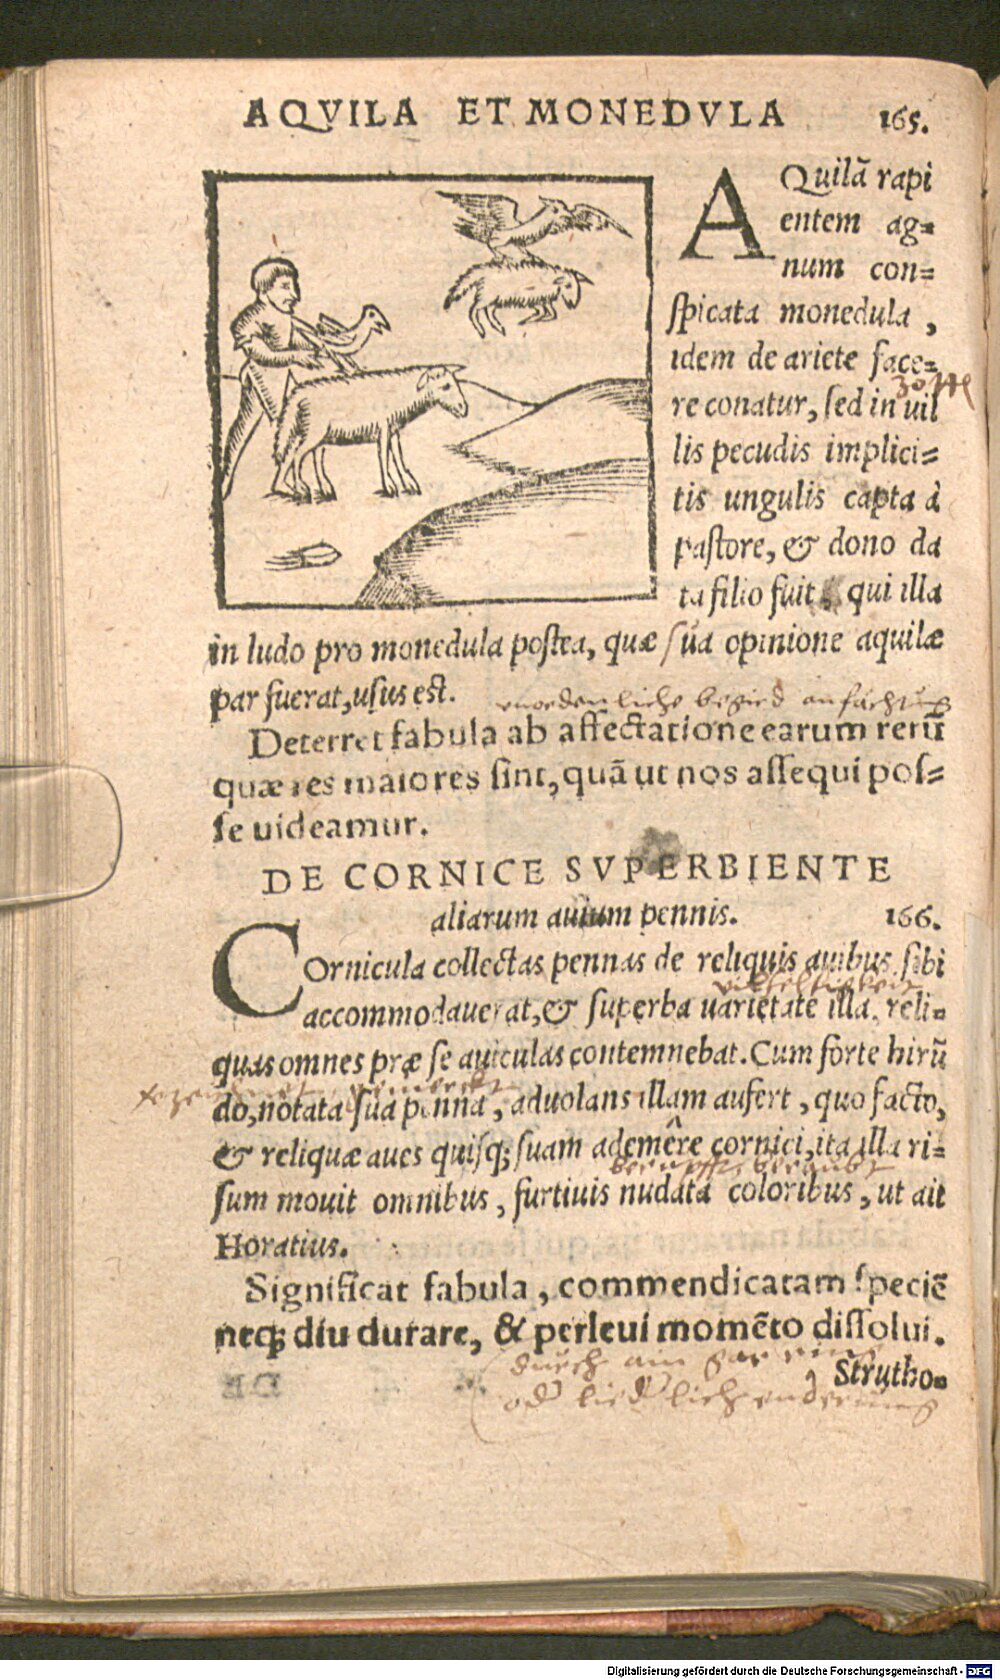 AQVILA ET MONEDVLA 165.
AQuilã rapi
entem ag=
num con=
ſpicata monedula ,
idem de ariete face=
re conatur, ſed in uil
lis pecudis implici=
tis ungulis capta à
paſtore, & dono da
ta filio fuit, qui illa
in ludo pro monedula poſtea, quæ ſua opinione aquilæ
par fuerat, uſus eſt.
begird anfachtung
Deterret fabula ab affectatione earum rerũ
quæ res maiores ſint, quã ut nos aſſequi poſ=
ſe uideamur.
DE CORNICE SVPERBIENTE
aliarum auium pennis. 166.
COrnicula collectas pennas de reliquis auibus ſibi
accommodauerat, & ſuperba uarietate illa, reli=
quas omnes præ ſe auiculas contemnebat. Cum forte hirũ
do, notata ſua penna, aduolans illam aufert, quo facto,
& reliquæ aues quiſq; ſuam ademêre cornici, ita illa ri=
beraubt
ſum mouit omnibus, furtiuis nudata coloribus, ut ait
Horatius.
Significat fabula, commendicatam ſpeciẽ
neq; diu durare, & perleui momẽto diſſolui.
durch ain
Strutho=